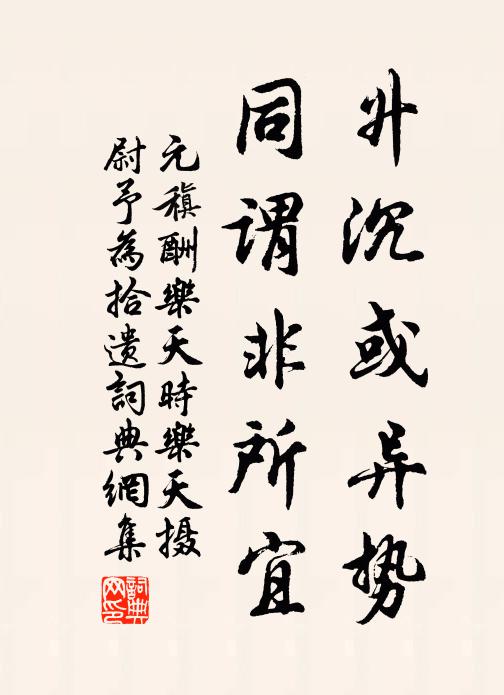 升沉或异势
同谓非所宜
元稹酬樂天時樂天摄
尉予為拾遺詞典網集
詞典網印